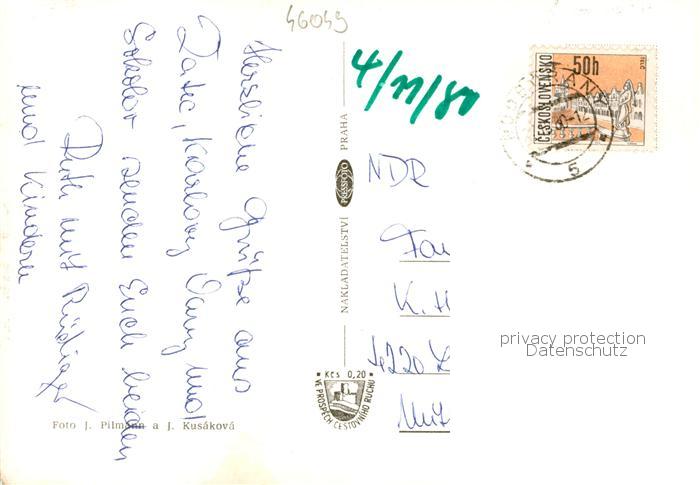 46049
Herzliche Grüße aus
Žatec, Karlovy Vary und
Sokolov senden Euch beiden
Ruth mit Rüdiger
und Kindern
Foto J. Pilmann a J. Kusáková
NAKLADATELSTVÍ PRESSFOTO PRAHA
Kčs 0,20
VE PROSPĚCH CESTOVNÍHO RUCHU
4/11/80
ČESKOSLOVENSKO
50h
5
NDR
Fam
K. H
4220 L
Mit
privacy protection
Datenschutz